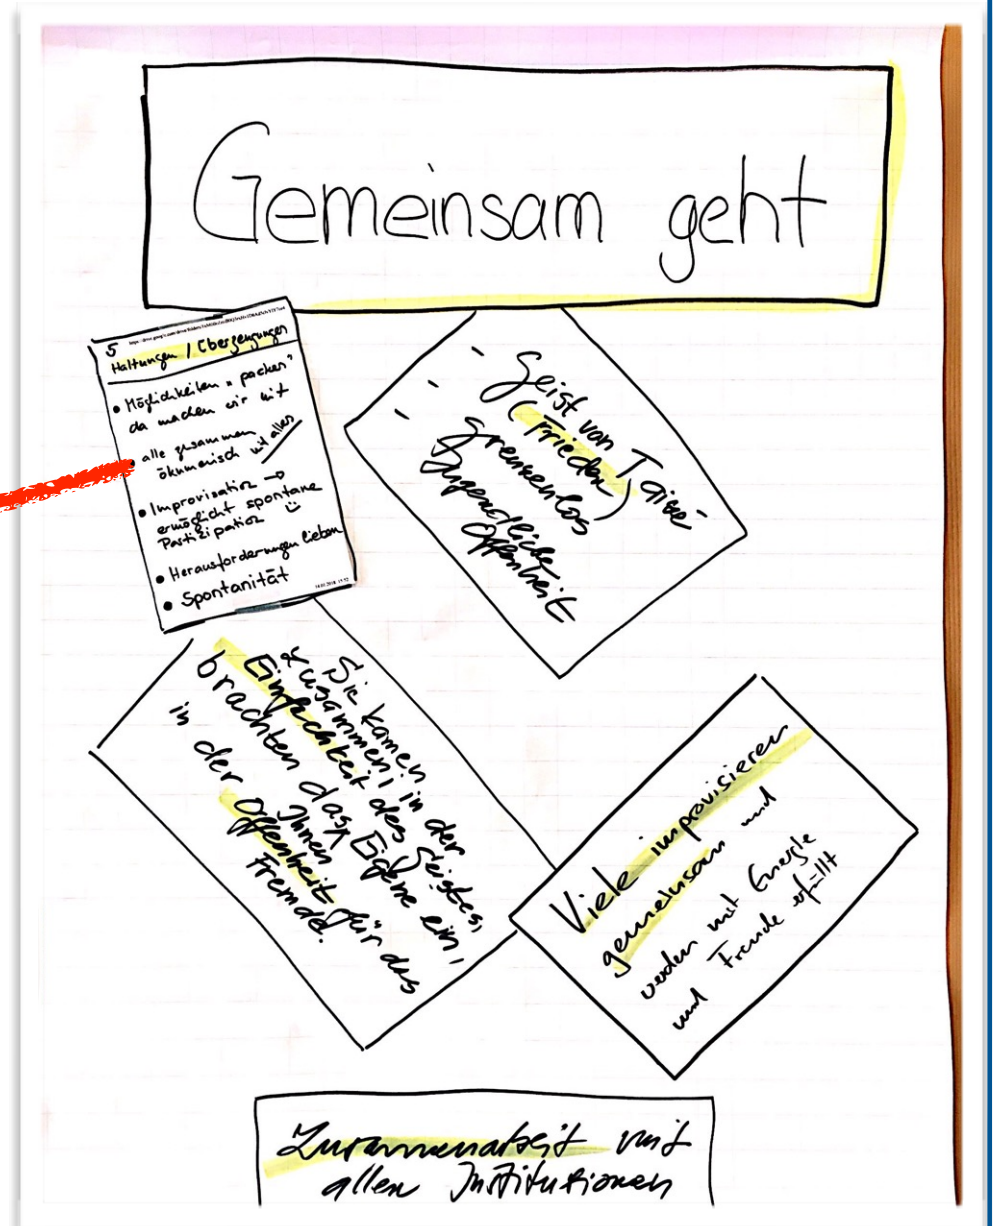 Gemeinsam geht
5
Haltungen / Überzeugungen
• Möglichkeiten "packen"
da machen wir mit
• alle zusammen
ökumenisch mit allen
• Improvisation →
ermöglicht spontane
Partizipation
• Herausforderungen lieben
• Spontanität
- Geist von Taizé
- (Frieden)
- grenzenlos
Jugendliche
Offenheit
Sie kamen
zusammen, in der
Einfachkeit des Geistes,
brachten das Ihnen Eigene ein,
in der Offenheit für das
Fremde.
Viele improvisieren
gemeinsam und
werden mit Energie
und Freude erfüllt
Zusammenarbeit mit
allen Institutionen